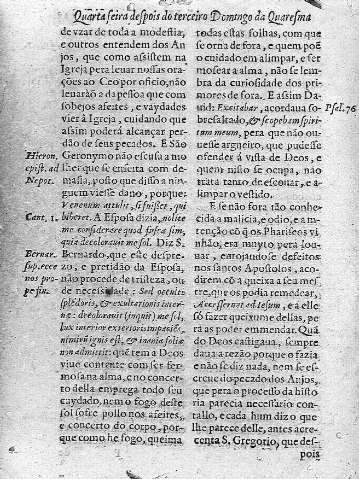 Quarta feira despois do terceiro Domingo da Quaresma
de vzar de toda a modestia,
e outros entendem dos An-
jos, que como assistem na
Igreja pera leuar nossas ora-
ções ao Ceo por officio, não
leuarão a da pessoa que com
sobejos afeites, e vaydades
vier à Igreja, cuidando que
assim poderá alcançar per-
dão de seus pecados. E São
Hieron. Geronymo não escusa a mo
epist. ad lher que se enfeita com de-
Nepot. masia, posto que disso a nin-
guem viesse dano, porque:
venenum attulit, si fuisset, qui
Cant. 1. biberet. A Esposa dizia, nolite
me considerare quod fusca sim,
quia decolorauit me sol. Diz S.
Bernar. Bernardo, que este despre-
sup. zo, e pretidão da Esposa,
não procede de tristeza, ou
de necessidade, Sed occulti
splendoris, & exultationis inter-
næ: decolorauit (inquit) me sol,
lux interior exterioris
nimirum ignis est, & inania foliæ
non admittit: que tem a Deos
viuo contente com ser fer-
mosa na alma, e no concer-
to della emprega todo seu
cuydado, nem o fogo deste
sol sofre pollo nos afeites,
e concerto do corpo, por-
que como he fogo, queima
todas estas folhas, com que
se orna de fora, e quem poẽ
o cuidado em alimpar, e fer
mosear a alma, não se lem-
bra da curiosidade dos pri-
mores de fora. E assim Da-
uid: Excitabar, acordaua so- Psal. 76
bresaltado, & scopebam spiri-
tum meum, pera que não ou-
uesse argueiro, que pudesse
ofender á vista de Deos, e
quem nisso se ocupa, não
trata tanto de escouar, e a-
limpar o vestido.
E se não fora tão conhe-
cida a malicia, e odio, e a in-
tenção cõ q̃ os Phariseos vi-
nhão, era muyto pera lou-
uar, enojandose de defeitos
nos santos Apostolos, aco-
direm cõ a queixa a seu mes-
tre, que os podia remedear,
Accesserunt ad Iesum, e a elle
só fazer queixume dellas, pe-
ra as poder emmendar. Quã
do Deos castigaua, sempre
daua a rezão porque o fazia,
e não se diz nada, nem se es-
creue do pecado dos Anjos,
que pera o processo da histo
ria parecia necessario con-
tallo, e cada hum diz o que
lhe parece delle, antes acre-
centa S. Gregorio, que des-
pois